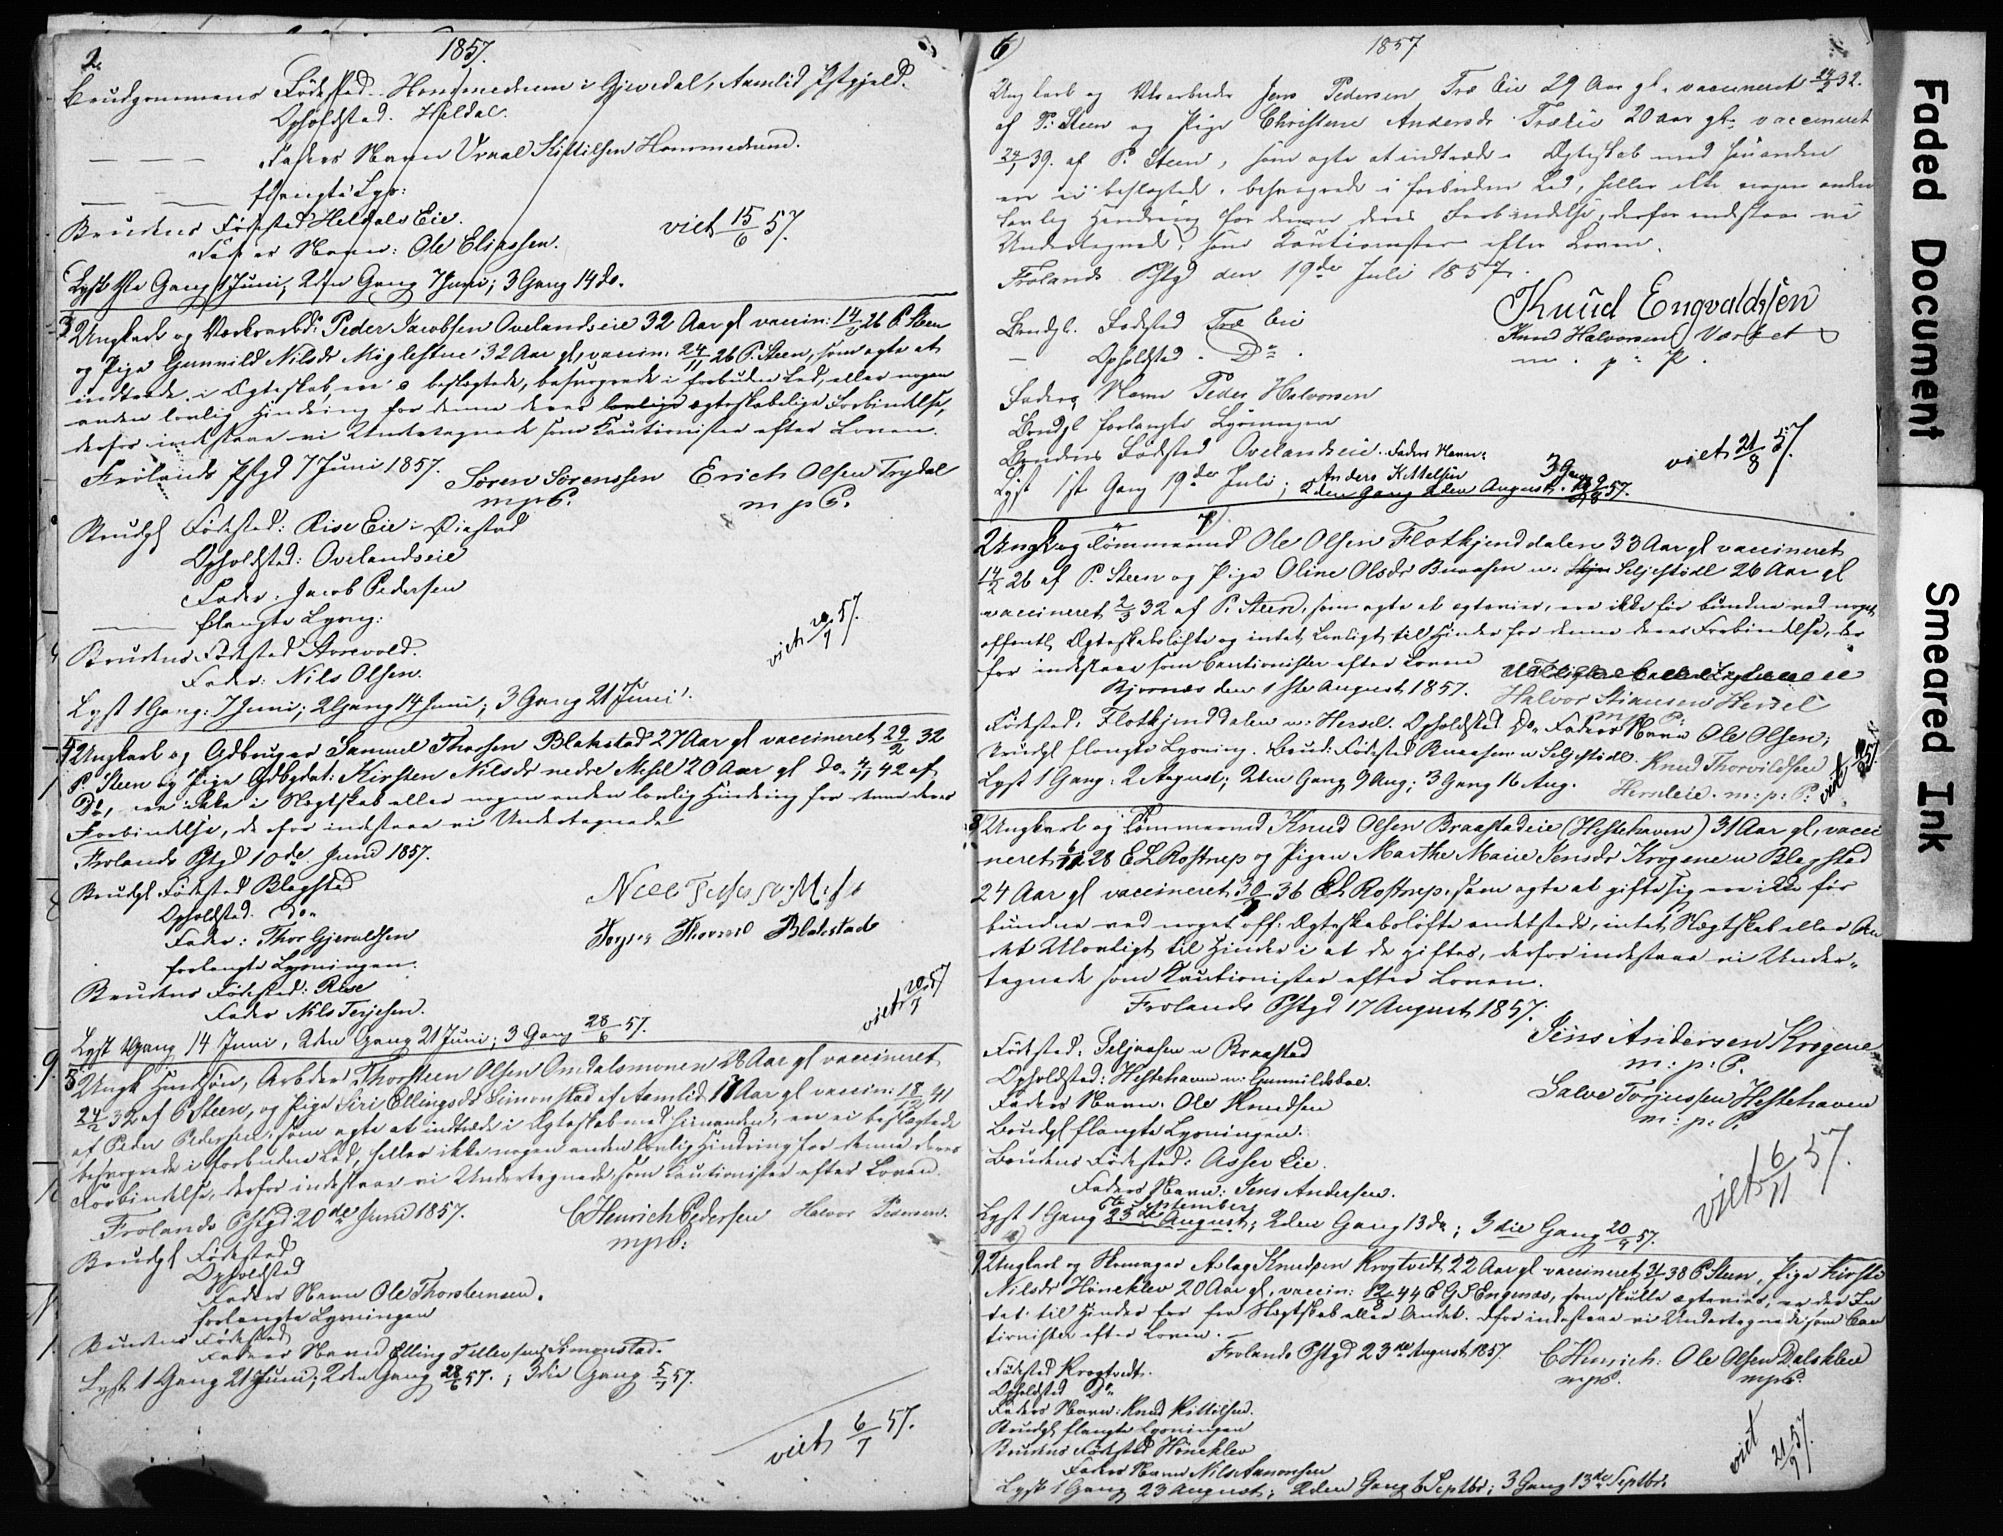 2.
1857.
Brudgommens Fødested. Hommedrum i Gjevedal, Aamlid Pstgjeld.
Opholdsted. Heldal.
Faders Navn Vraal Kittilsen Hommedrum.
flangte Lys:
Brudens Fødested Heldals Eie.
Faders Navn: Ole Eliassen.
viet 15/6 57.
Lyst 1ste Gang 1 Juni, 2den Gang 7 Juni; 3 Gang 14 do.
3 Ungkarl og Værksarbd: Peder Jacobsen Ovelandseie 32 Aar gl vaccin: 14/11 26 P. Steen
og Pige Gunnild Nilsdr Møglestue 32 Aar gl, vaccin. 24/11 26 P. Steen, som agte at
indtræde i Ægteskab, ere ei beslægtede, besvogrede i forbudne Led, eller nogen
anden lovlig Hindring for denne deres lovlige ægteskabelige Forbindelse,
derfor indestaae vi Undertegnede som Cautionister efter Loven.
Frolands Pstgd 7 Juni 1857.
Søren Sørenssen
mpP.
Erich Olsen Trydal
m p P.
Brudgl Fødested: Rise Eie i Øiestad
Opholdsted: Ovelandseie
Fader: Jacob Pedersen
flangte Lysng:
Brudens Fødested Aasevold.
Fader: Nils Olsen.
viet 20/7 57.
Lyst 1 Gang: 7 Juni; 2 Gang 14 Juni; 3 Gang 21 Juni.
4 Ungkarl og Gdbruger Samuel Thorsen Blakstad 27 Aar gl vaccineret 29/2 32
P. Steen og Pige Gdbrdat. Kirsten Nilsdr nedre Mesel 20 Aar gl do. 4/11 42 af
Do, ere ikke i Slægtskab eller nogen anden lovlig Hindring for denne deres
Forbindelse, derfor indestaae vi Undertegnede
Frolands Pstgd 10de Juni 1857.
Brudgl Fødested Blagstad
Opholdsted. Do.
Fader: Thor Gjeruldsen
forlangte Lysningen.
Brudens Fødested: Rise
Fader Nils Terjesen.
Thorsen Blakstad
viet 20/7 57
Lyst 1 Gang 14 Juni, 2den Gang 21 Juni; 3 Gang 28/6 57.
5 Ungk Huussøn, Arbder Thorsteen Olsen Omdalsmonen 28 Aar gl vaccineret
24/2 32 af P Steen, og Pige Siri Ellingsdr Simonstad af Aamlid 17 Aar gl vaccin: 18/12 41
af Peder Pedersen, som agte at indtræde i Ægteskab med hinanden, ere ei beslægtede
besvogrede i forbudne Led, heller ikke nogen anden lovlig Hindring for denne deres
Forbindelse, derfor indestaae vi Undertegnede, som Cautionister efter Loven.
Frolands Pstgd 20de Juni 1857.
C Henrich Pedersen
mpP:
Halvor Pedersen.
Brudgl Fødested
Opholdsted
Faders Navn Ole Thorsteensen.
forlangte Lysningen
Brudens Fødested
Faders Navn Elling Tellevsen Simonstad.
Lyst 1 Gang 21 Juni; 2den Gang 28/6 57.; 3die Gang 5/7 57.
viet 6/7 57.
6
1857
Ungkarl og Pedersen Træ Eie 29 Aar gl. vaccineret 24/2 32.
af P. Steen og Pige Christine Andersdr Træeie 20 aar gl. vaccineret
24/ 39. af P. Steen, som agte at indtræde i Ægteskab med hinanden
ere ei beslægtede, besvogrede i forbudne Led, heller ikke nogen anden
lovlig Hindring for denne deres Forbindelse, derfor indestaae vi
Undertegnede, som Cautionister efter Loven.
Frolands Pstgd den 19de Juli 1857.
Knud Engvaldssen
Knud Halvorsen Værket
m. p. P.
Brudgl. Fødested Træ Eie
Opholdsted. Do.
Faders Navn Peder Halvorsen
Brudgl forlangte Lysningen
Brudens Fødested Ovelandseie. Faders Navn:
Anders Kittelsen
viet 21/8 57.
Lyst 1ste Gang 19de Juli; 2den Gang 2den August. 3 Gang 9/8 57.
Ungk og Tømmermd Ole Olsen Flotkjenddalen 33 Aar gl vaccineret
14/2 26 af P. Steen og Pige Oline Olsdr Buaasen u. Seljestødl 26 Aar gl
vaccineret 2/3 32 af P. Steen, som agte at ægtevies, ere ikke før bundne ved noget
offentl Ægteskabsløfte og intet Lovligt til Hinder for denne deres Forbindelse, der
for indestaae som Cautionister efter Loven
Bjornes den 1ste August 1857.
Halvor Stiansen Hersel
m. P.
Fødested. Flotkjenddalen u. Hersel. Opholdsted Do. Faders Navn Ole Olsen;
Brudgl flangte Lysning. Brud: Fødested Buaasen u Seljestødl. Knud Thorvildsen
Lyst 1 Gang. 2 August; 2den Gang 9 Aug; 3 Gang 16 Aug. m: p: P:
viet
8 Ungkarl og Tømmermd Knud Olsen Braastadeie (Hestehaven) 31 Aar gl, vacci
neret 28 E L Rostrup og Pigen Marthe Marie Jensdr Krogene u Blagstad
24 Aar gl vaccineret 30/ 36 E L Rostrup, som agte at gifte sig ere ikke før
bundne ved noget off: Ægteskabsløfte andetsteds, intet Slægtskab eller An
det Ulovligt til Hinder i at de giftes, derfor indestaae vi Under-
tegnede som Cautionister efter Loven.
Frolands Pstgd 17 August 1857.
Jens Andersen Krogene
m: p: P.
Salve Torjussen Hestehaven
m: p: P.
Fødested. Seljeaasen u Braastad
Opholdsted: Hestehaven u: Gunnildsboe.
Faders Navn. Ole Knudsen
Brudgl flangte Lysningen.
Brudens Fødested: Asser Eie.
Faders Navn: Jens Andersen.
viet 6/11 57.
6te September
Lyst 1 Gang 23de August; 2den Gang 13 do; 3die Gang 20/9 57.
9 Ungkarl og Skomager Aslag Knudsen Krogtvedt 22 Aar gl vaccineret 38 P Steen, Pige Kirsti
Nilsdr Høneklev 20 Aar gl, vaccin: 12/8 44 E G S Engenæs, som skulle ægtevies, er der In
tet til Hinder for fra Slægtskab eller Andet. Dfor indestaae vi Undertegnede som Cau
tionister efter Loven.
Frolands Pstgd 23de August 1857.
C Henrich:
mpP.
Ole Olsen Dalsklev
mpP.
Fødested Krogtvedt.
Opholdsted Do.
Faders Navn: Knud Kittilsen.
Brudgl flangte Lysningen
Brudens Fødested Höneklev
Faders Navn Nils Aanonsen
viet 21/9 57.
Lyst 1 Gang 23 August; 2den Gang 6 Septbr; 3 Gang 13de Septbr.
Faded Document
Smeared Ink